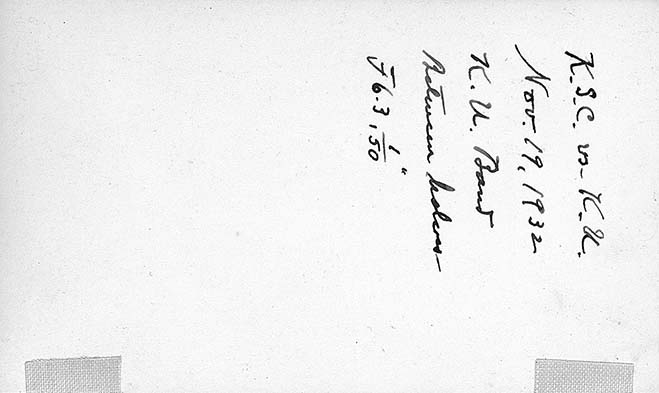 K.S.C. vs- K.U.
Nov. 19, 1932
K. U. Band
Between halves-
F 6.3, 1/50"